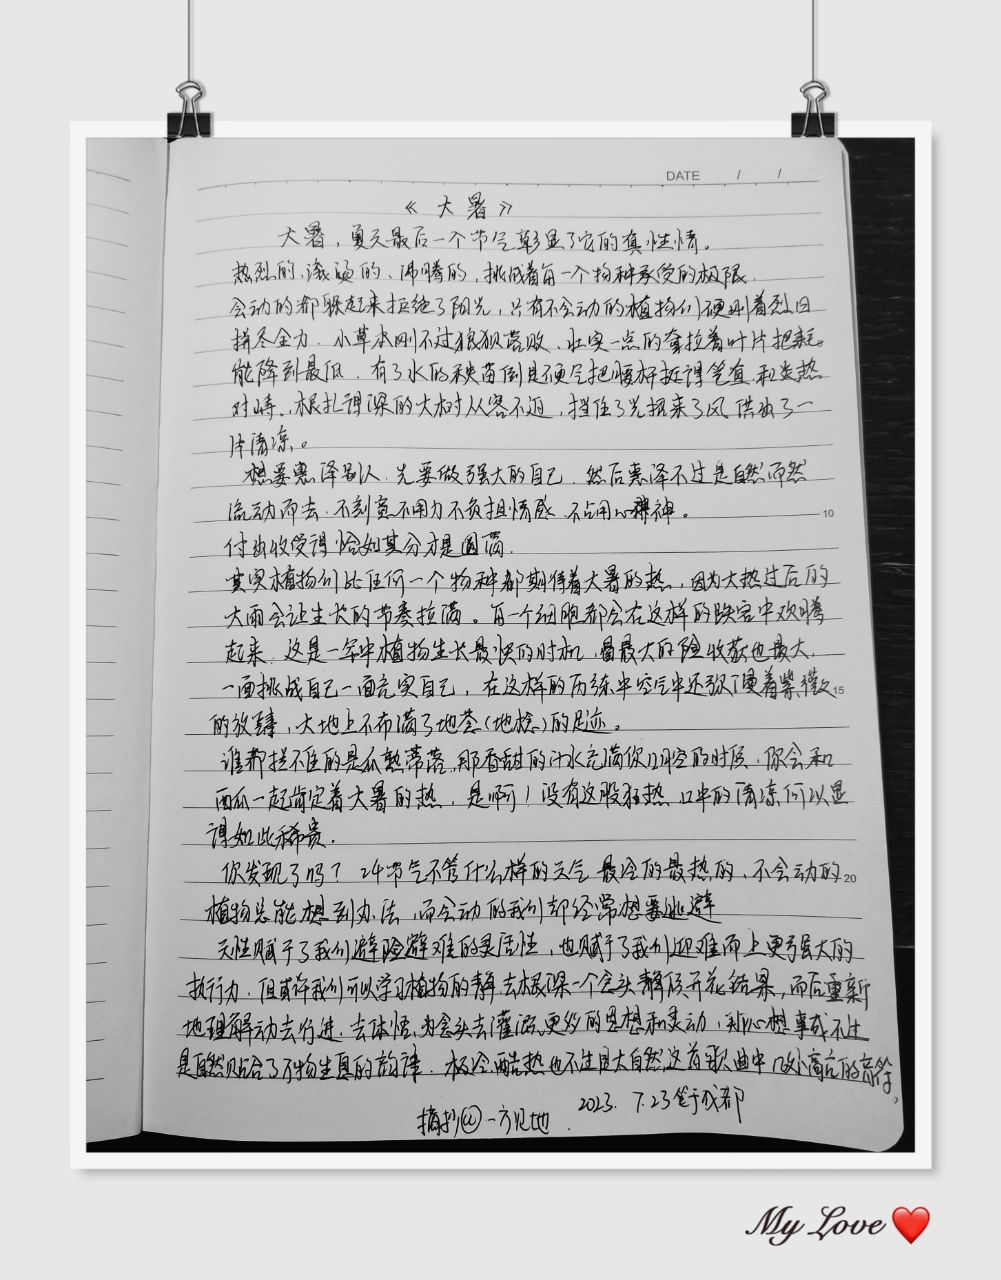 DATE / /
《大暑》
大暑,夏天最后一个节气彰显了它的真性情。
热烈的、滚烫的、沸腾的,挑战着每一个物种承受的极限.
会动的都躲起来拒绝了阳光,只有不会动的植物们硬刚着烈日
拼尽全力.小草本刚不过狼狈落败,壮实一点的耷拉着叶片把耗
能降到最低.有了水的秧苗倒是硬气把腰杆挺得笔直,和炎热
对峙、根扎得深的大树从容不迫,挡住了光招来了风供出了一
片清凉。
想要惠泽别人.先要做强大的自己.然后惠泽不过是自然而然
流动而去.不刻意不用力不负担情感 不占用心神。
付出收受得恰如其分才是圆满.
其实植物们比任何一个物种都期待着大暑的热,因为大热过后的
大雨会让生长的节奏拉满。每一个细胞都会在这样的际会中欢腾
起来.这是一年中植物生长最快的时机,冒最大的险收获也最大.
一面挑战自己一面充实自己,在这样的历练中空气中还弥漫着紫薇 15
的放肆,大地上不布满了地莶(地棯)的足迹。
谁都拦不住的是瓜熟蒂落.那香甜的汁水充满你口腔的时候,你会和
西瓜一起肯定着大暑的热,是啊!没有这股狂热 口中的清凉何以显
得如此稀贵.
你发现了吗?24节气不管什么样的天气 最冷的最热的、不会动的 20
植物总能想到办法,而会动的我们却经常想要逃避
天性赋予了我们避险避难的灵活性,也赋予了我们迎难而上更强大的
执行力.但或许我们可以学习植物的静 去根深一个念头静候开花结果,而后重新
地理解动去行进.去体悟.为念头去灌溉更多的思想和灵动,那心想事成不过
是自然贴合了万物生息的韵律.极冷酷热也不过是大自然这首歌曲中几处高亢的音符,
2023.7.23 于成都
摘抄@一方见地.
10
My Love ❤️